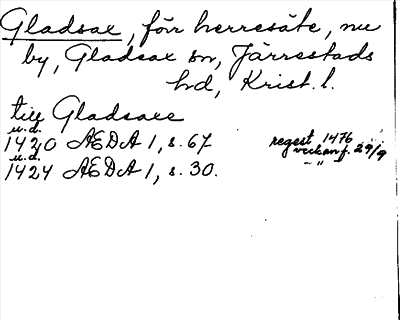 Gladsax, förr herresäte, nu
by, Gladsax sn, Järrestads
hd, Krist. l.
till Gladsaxe
u.d.
1420 ÆDA 1, s. 67 regest 1476
veckan f. 29/9
u.d.
1424 ÆDA 1, s. 30. -"-